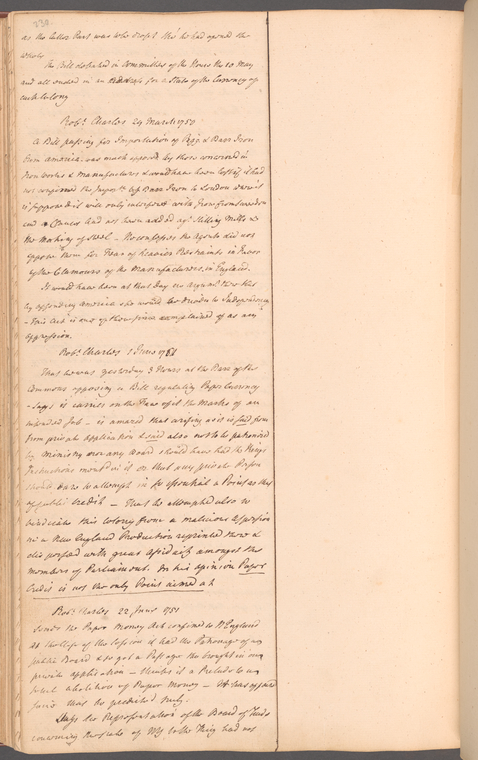 as the other Part was who drops this he had opened the
whole
The Bill defeated in Committee of the House the 10 May
and all ended in an Address for a State of the Currency of
each Colony
Rob.t Charles 24 March 1750
A Bill passing for Importation of Pigg & Barr Iron
from america was much opposed by those concerned in
Iron works & Manufactures & would have been lost if it had
not confined the Import.n of Barr Iron to London where it
is supposed it will only interfere with Iron from Sweden
and a Clause had not been added ag.t Slitting Mills &
the Making of Steel – He confesses the Agents did not
oppose them for Fear of heavier Restraints in Favor
of the Clamours of the Manufacturers in England.
It would have been at that Day no argum.t then that
by offending America she would be driven to Independency
– This Act is one of those since complained of as an
oppression.
Rob.t Charles 5 June 1751
That he was yesterday 3 Hours at the Barr of the
Commons opposing a Bill regulating Paper Currency
– Says it carries on the Face of it the Marks of an
intended Job – is amazed that arising as it is said from
from private application & said also not to be patronized
by Ministry nor any Board should have had the Kings
Instructions in it or that any private Person
should dare to attempt in so essential a Point as this
of publick Credit – That he attempted also to
vindicate this Colony from a malicious Aspersion
in a New England Production reprinted there &
dispersed with great Assiduity amongst the
members of Parliament. In his opinion Paper
Credit is not the only Point aimed at
Rob.t Charles 22 June 1751
Sends the Paper Money Act confined to N England
At the Close of the Session it had the Patronage of a
publick Board & so got a Passage tho brought in on
private application – Thinks it a Prelude to a
total abolition of Paper Money – 
facie that he predicted truly.
Says the Representation of the Board of Trade
concerning the State of NY to the King had not